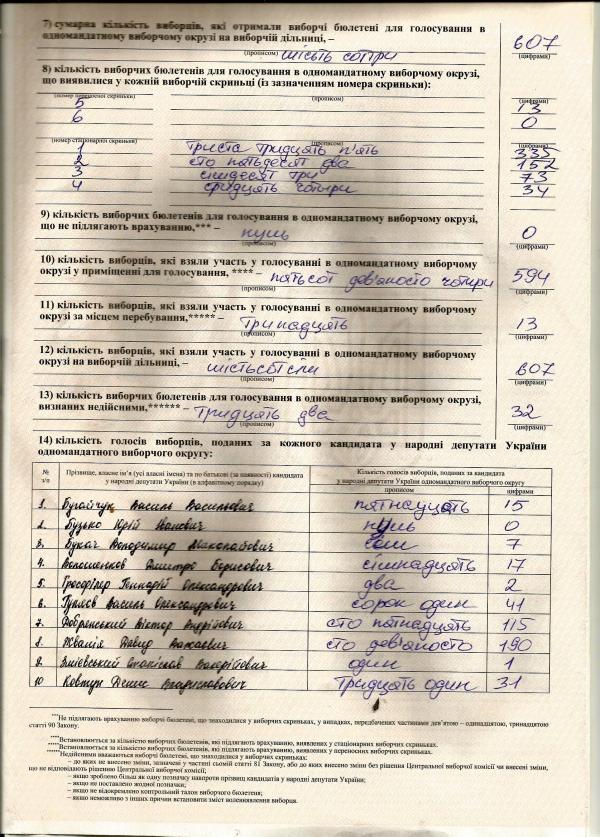 7) сумарна кількість виборців, які отримали виборчі бюлетені для голосування в
одномандатному виборчому окрузі на виборчій дільниці, –
шістьсот 607
(прописом) (цифрами)
8) кількість виборчих бюлетенів для голосування в одномандатному виборчому окрузі,
що виявилися у кожній виборчій скриньці (із зазначенням номера скриньки):
(номер переносної скриньки) (прописом)
5 13
6 0
(номер стаціонарної скриньки) (прописом) (цифрами)
1 триста тридцять п'ять 335
2 сто пятьдесят два 152
3 три 73
4 чотири 34
9) кількість виборчих бюлетенів для голосування в одномандатному виборчому окрузі,
що не підлягають врахуванню,*** – нуль 0
(прописом) (цифрами)
10) кількість виборців, які взяли участь у голосуванні в одномандатному виборчому
окрузі у приміщенні для голосування, **** – пятьсот дев'яносто чотири 594
(прописом) (цифрами)
11) кількість виборців, які взяли участь у голосуванні в одномандатному виборчому
окрузі за місцем перебування,***** – тринадцять 13
(прописом) (цифрами)
12) кількість виборців, які взяли участь у голосуванні в одномандатному виборчому
окрузі на виборчій дільниці, – 607
(прописом) (цифрами)
13) кількість виборчих бюлетенів для голосування в одномандатному виборчому окрузі,
визнаних недійсними,****** – тридцять два 32
(прописом) (цифрами)
14) кількість голосів виборців, поданих за кожного кандидата у народні депутати України
одномандатного виборчого округу:
№ з/п Прізвище, власне ім'я (усі власні імена) та по батькові (за наявності) кандидата
у народні депутати України (в алфавітному порядку)
Кількість голосів виборців, поданих за кандидата
у народні депутати України одномандатного виборчого округу
прописом цифрами
1. Бугайчук Василь Васильович пятнадцять 15
2. Бузько Юрій Іванович нуль 0
3. Букач Володимир Миколайович сім 7
4. Волошенков Дмитро Борисович сімнадцять 17
5. Геннадій Олександрович два 2
6. Гуляєв Василь Олександрович сорок один 41
7. Добрянський Віктор Андрійович сто пятнадцять 115
8. Жванія Давид Важаєвич сто дев'яносто 190
9. Змієвський Станіслав Валерійович один 1
10 Ковтун Денис Владиславович тридцять один 31
***Не підлягають врахуванню виборчі бюлетені, що знаходилися у виборчих скриньках, у випадках, передбачених частинами дев'ятою – одинадцятою, тринадцятою
статті 90 Закону.
****Встановлюється за кількістю виборчих бюлетенів, які підлягають врахуванню, виявлених у стаціонарних виборчих скриньках.
*****Встановлюється за кількістю виборчих бюлетенів, які підлягають врахуванню, виявлених у переносних виборчих скриньках.
******Недійсними вважаються виборчі бюлетені, що знаходилися у виборчих скриньках:
– до яких не внесено зміни, зазначені у частині сьомій статті 81 Закону, або до яких внесено зміни без рішення Центральної виборчої комісії чи внесені зміни,
що не відповідають рішенню Центральної виборчої комісії;
– якщо зроблено більш як одну позначку навпроти прізвищ кандидатів у народні депутати України;
– якщо не поставлено жодної позначки;
– якщо не відокремлено контрольний талон виборчого бюлетеня;
– якщо неможливо з інших причин встановити зміст волевиявлення виборця.